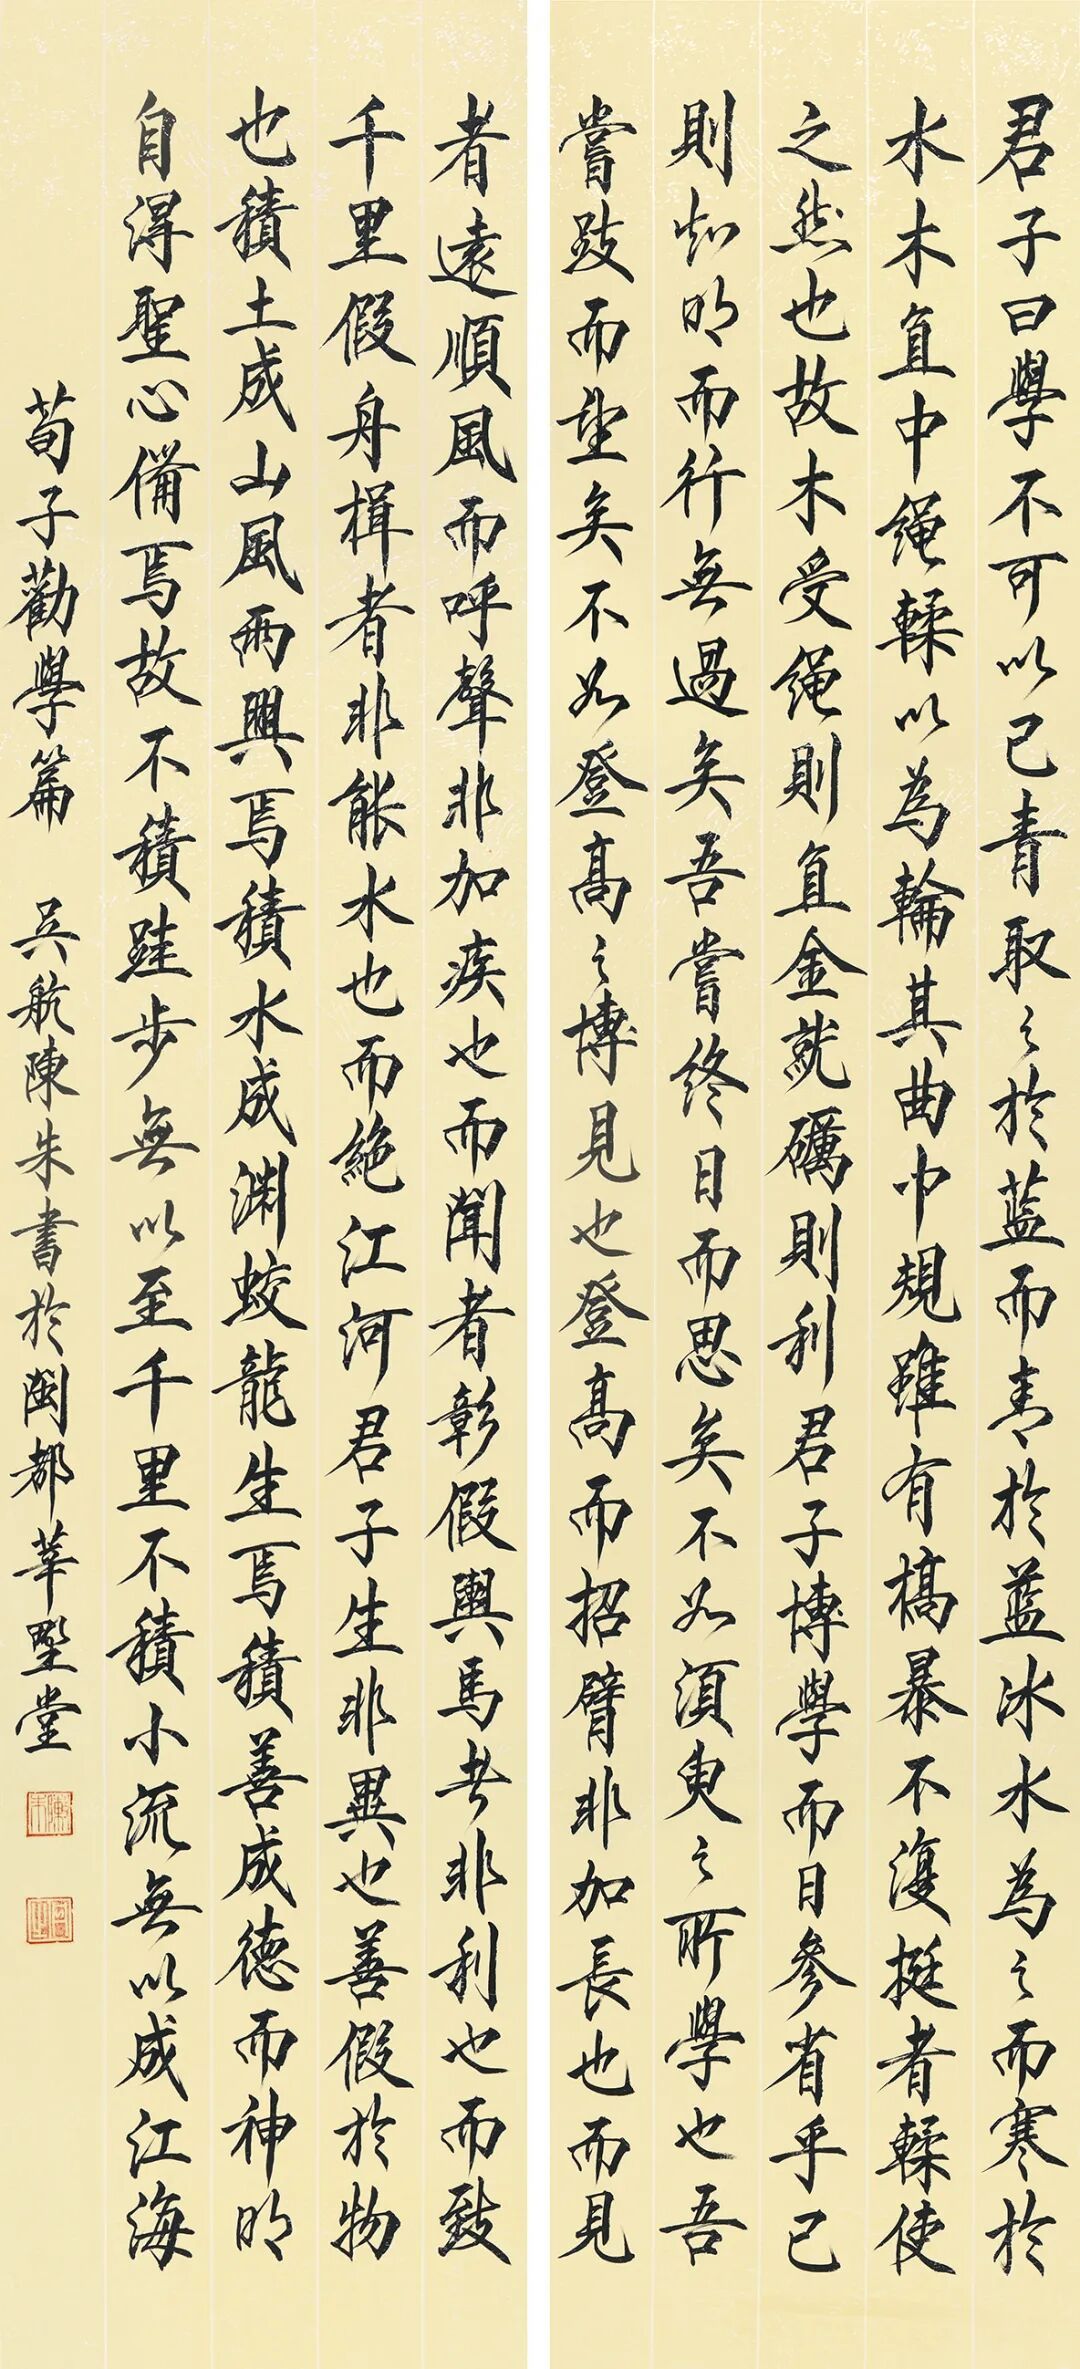 君子曰學不可以已青取之於藍而青於藍冰水為之而寒於
水木直中繩輮以為輪其曲中規雖有槁暴不復挺者輮使
之然也故木受繩則直金就礪則利君子博學而日參省乎己
則知明而行無過矣吾嘗終日而思矣不如須臾之所學也吾
嘗跂而望矣不如登高之博見也登高而招臂非加長也而見
者遠順風而呼聲非加疾也而聞者彰假輿馬者非利也而致
千里假舟楫者非能水也而絕江河君子生非異也善假於物
也積土成山風雨興焉積水成淵蛟龍生焉積善成德而神明
自得聖心備焉故不積跬步無以至千里不積小流無以成江海
荀子勸學篇 吳航陳朱書於閩都莘墾堂